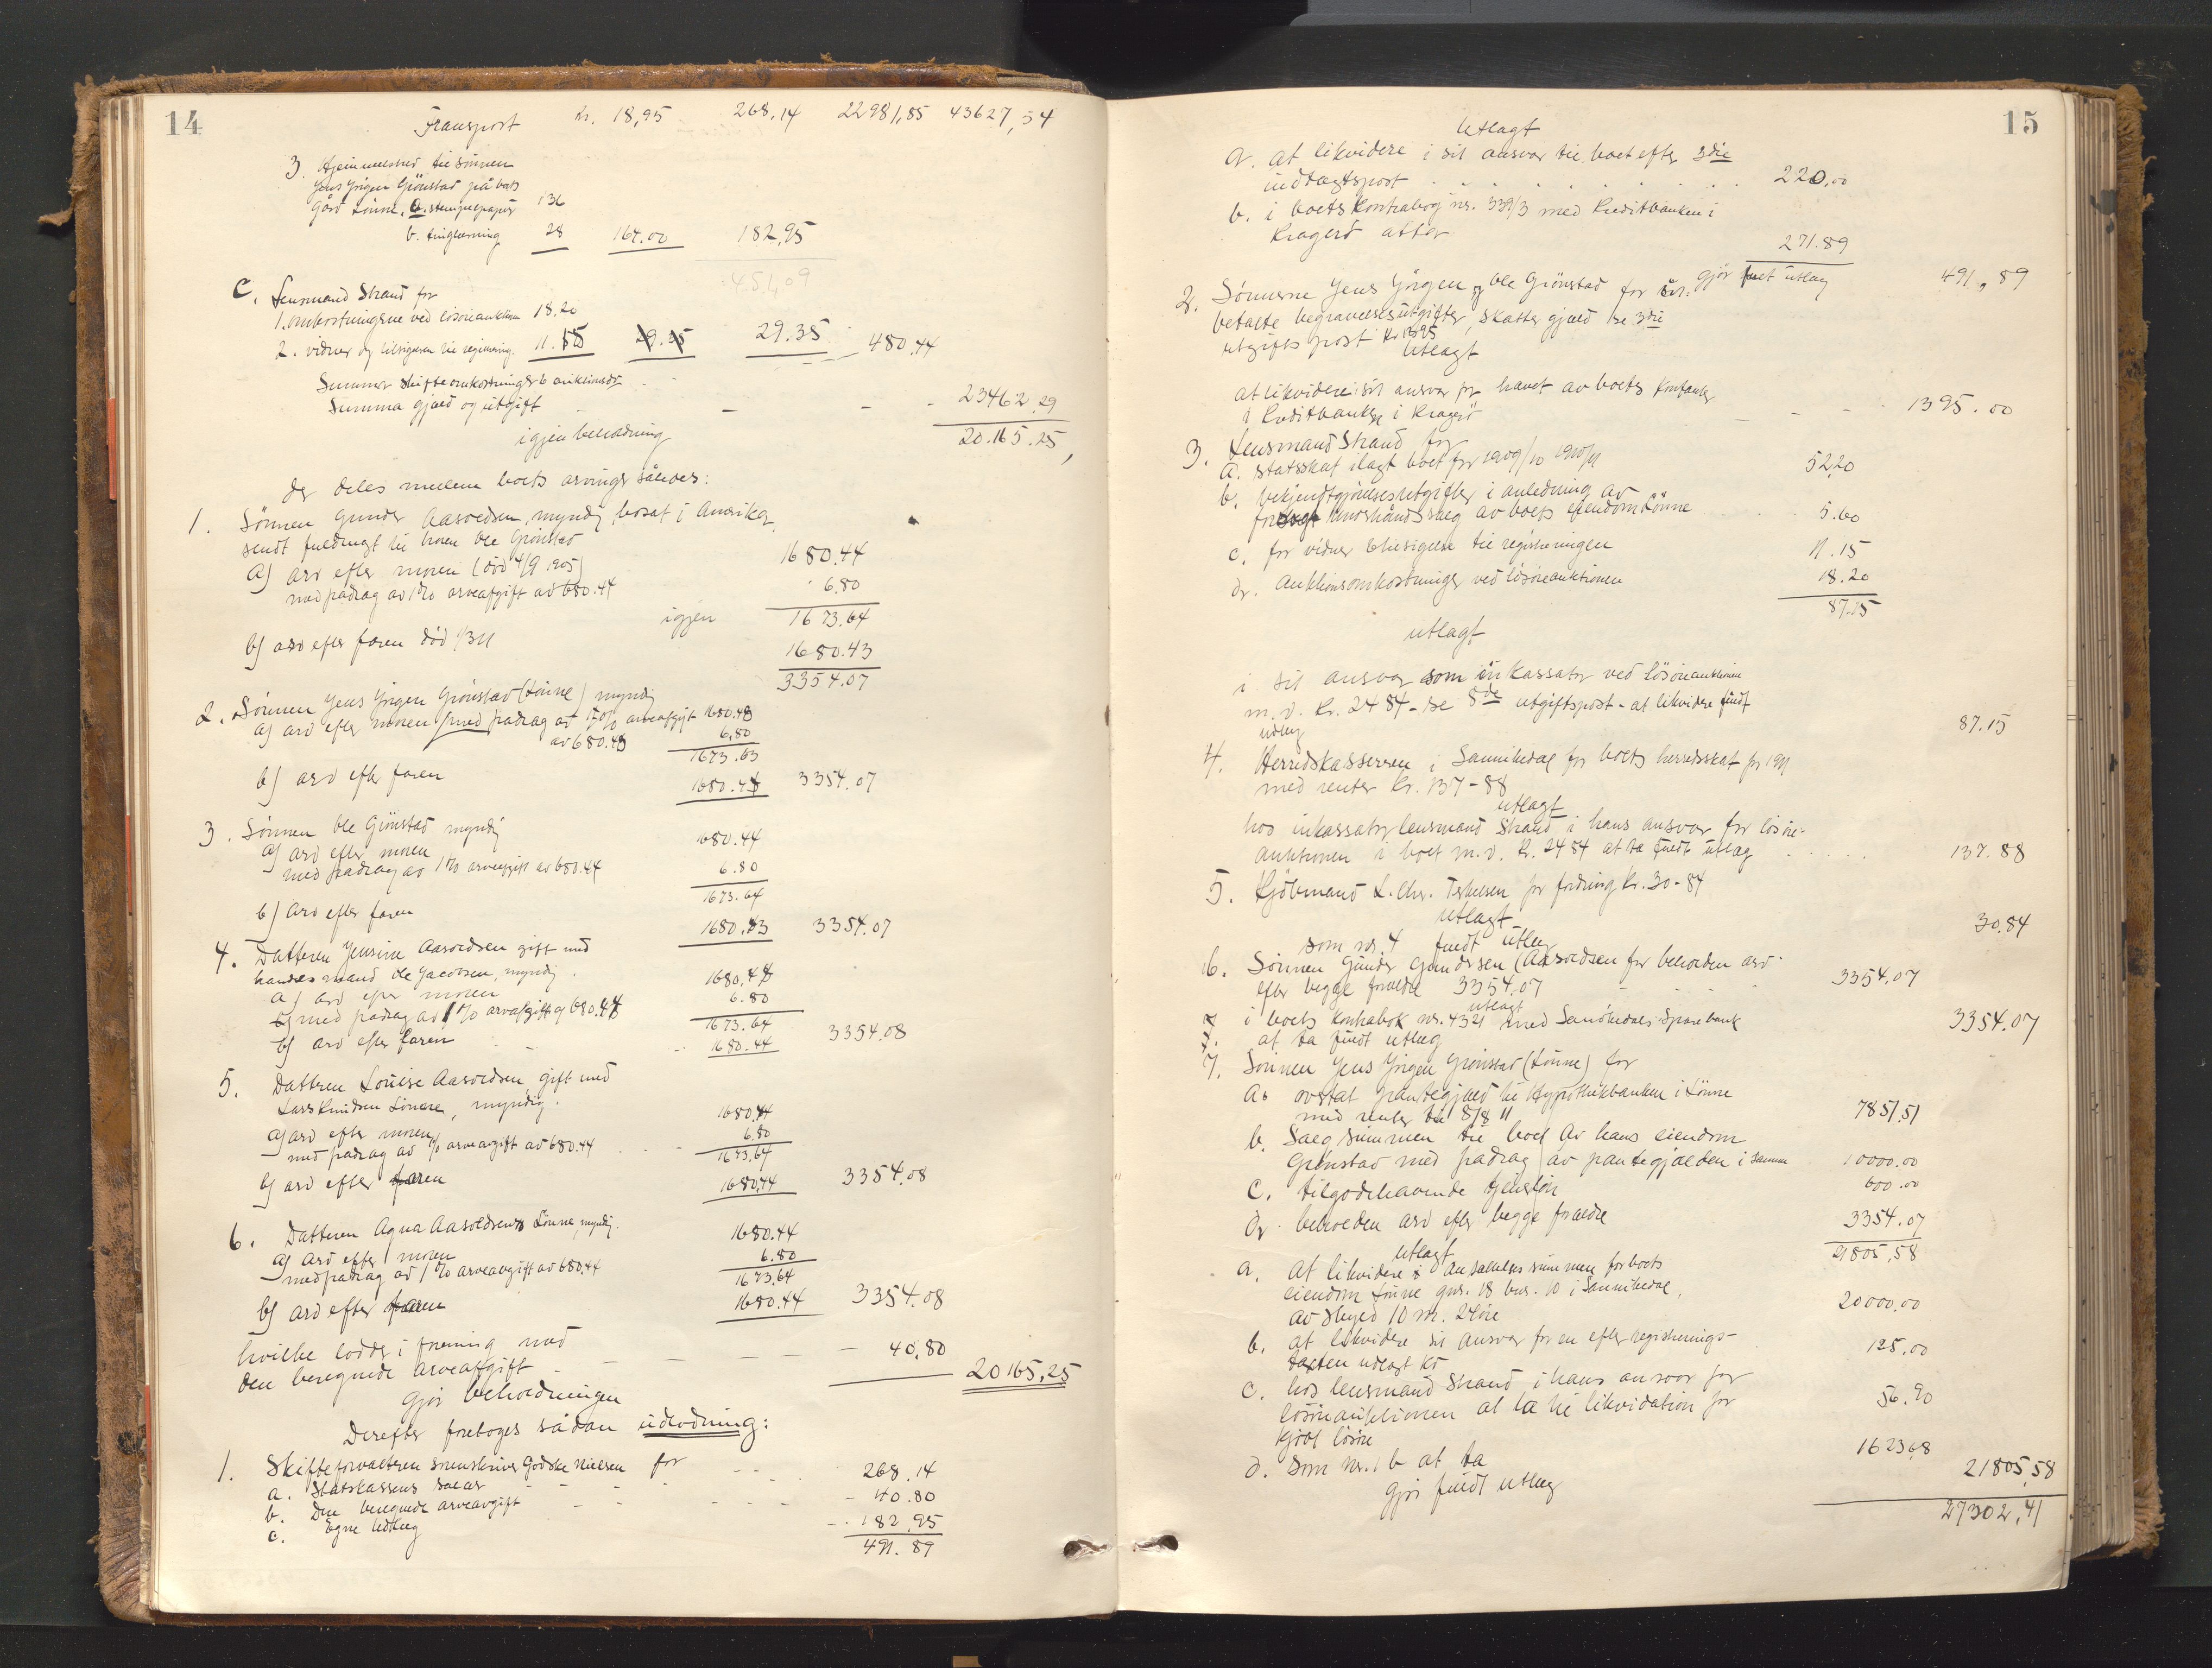 14
Transport kr. 18,95 268,14 22981,85 43627,54
3. Hjemmelsbrev til sönnen
Jens Jörgen Grönstad på boets
gård Lönne, a. stempelpapir 136
b. tinglæsning 28 164.00 182.95
451,09
C. Lensmand Strand for
1. omkostningerne ved lösöreauktion 18.20
2. vidner og tilsigelsen til registrering 11.15 29.35 29.35 480.44
Summa skifteomkostninger & auktionsdo
Summa gjæld og utgift 23462.29
igjen beholdning 20.165.25
der deles mellem boets arvinger således:
1. Sönnen Gunder Aasoldsen, myndig, bosat i Amerika,
sendt fuldmagt til broren Ole Grönstad
a) arv efter moren (död 4/9 1905) 1680.44
med fradrag av 1% arveafgift av 680.44 6.80
igjen 1673.64
b) arv efter faren död 1/3 11 1680.43
3354.07
2. Sönnen Jens Jörgen Grönstad (Lönne) myndig
a) arv efter moren med fradrag av 1% arveafgift 1680.43
av 680.43 6.80
1673.63
b) arv efter faren 1680.44 3354.07
3. Sönnen Ole Grönstad myndig
a) arv efter moren 1680.44
med fradrag av 1% arveafgift av 680.44 6.80
1673.64
b) Arv efter faren 1680.43 3354.07
4. Datteren Jensine Aasoldsen gift med
handelsmand Ole Jacobsen, myndig.
a) arv efter moren 1680.44
med fradrag av 1% arvafgift af 680.44 6.80
1673.64
b) arv efter faren 1680.44 3354.08
5. Datteren Louise Aasoldsen, gift med
Lars Knudsen Lönne, myndig.
a) arv efter moren 1680.44
med fradrag av 1% arveavgift av 680.44 6.80
1673.64
b) arv efter faren 1680.44 3354.08
6. Datteren Agna Aasoldsen Lönne, myndig.
a) Arv efter moren 1680.44
med fradrag av 1% arveavgift av 680.44 6.80
1673.64
b) arv efter faren 1680.44 3354.08
hvilke lodder i forening med
den beregnede arveafgift 40,80
gjör beholdningen 20165,25
Derefter foretoges sådan udlodning:
1. Skifteforvalteren sorenskriver Godske Nielsen for
a. Statskassens salær 268.14
b. Den beregnede arveavgift 40.80
c. Egne Udlæg 182.95
491.89
15
Utlagt
a. at likvidere i sit ansvar til boet efter 3die
indtægtspost 220,00
b. i boets kontrabog nr. 339/3 med Kreditbanken i
Kragerö atter 271.89
gjör fuldt utlæg 491,89
2. Sönnerne Jens Jörgen og Ole Grönstad for
betalte begravelsesutgifter, skatter gjæld se 3die
utgifts post kr 1395
Utlagt
at likvidere i sit ansvar for hævet av boets kontante
i Kreditbanken i Kragerö 1395.00
3. Lensmand Strand for
a. statsskat ilagt boet for 1909/10 1910/11 52,20
b. bekjendtgjörelsesutgifter i anledning av
forsögt underhåndssalg av boets eiendom Lönne 5.60
c. for vidner & tilsigelse til registreringen 11.15
d. Auktionsomkostninger ved lösöreauktionen 18.20
87.15
utlagt
i sit ansvar som inkassator ved lösöreauktionen
m.v. kr. 2484 - se 8de utgiftspost - at likvidere fuldt
udlæg 87.15
4. Herredskassereren i Sannikedal for boets herredsskat for 1911
med renter kr. 137-88
utlagt
hos inkassator lensmand Strand i hans ansvar for lösöre-
auktionen i boet m.v. kr. 2484 at ta fuldt utlæg 137.88
5. Kjöbmand L. Chr. Terkelsen for fordring kr. 30-84
utlagt
som nr. 4 fuldt utlæg 30.84
6. Sönnen Gunder Gundersen (Aasoldsen for beholden arv
efter begge forældre 3354.07 3354.07
utlagt
i boets kontrabok nr. 4321 med Sanökedals Sparebank
at ta fuldt utlæg 3354.07
7. Sönnen Jens Jörgen Grönstad (Lönne) for
a. overtat pantegjæld til Hypothekbanken i Lönne
med renter til 8/8 11 7851.51
b. Salgssummen til boet av hans eiendom
Grönstad med fradrag av pantegjælden i samme 10000.00
c. tilgodehavende tjenstlön 600.00
d. beholden arv efter begge forældre 3354.07
21805,58
utlagt
a. at likvidere i ansættelsessummen for boets
eiendom Lönne gnr. 18 bnr. 10 i Sannikedal,
av skyld 10 m. 24 öre 20000.00
b. at likvidere sit ansvar for en efter registrerings-
taxten udlagt ko 125,00
c. hos lensmand Strand i hans ansvar for
lösöreauktionen at ta til likvidation for
kjöbt lösöre 56.90
d. som nr. 1 b at ta 1623,68
gjör fuldt utlæg 21805,58
27302,41